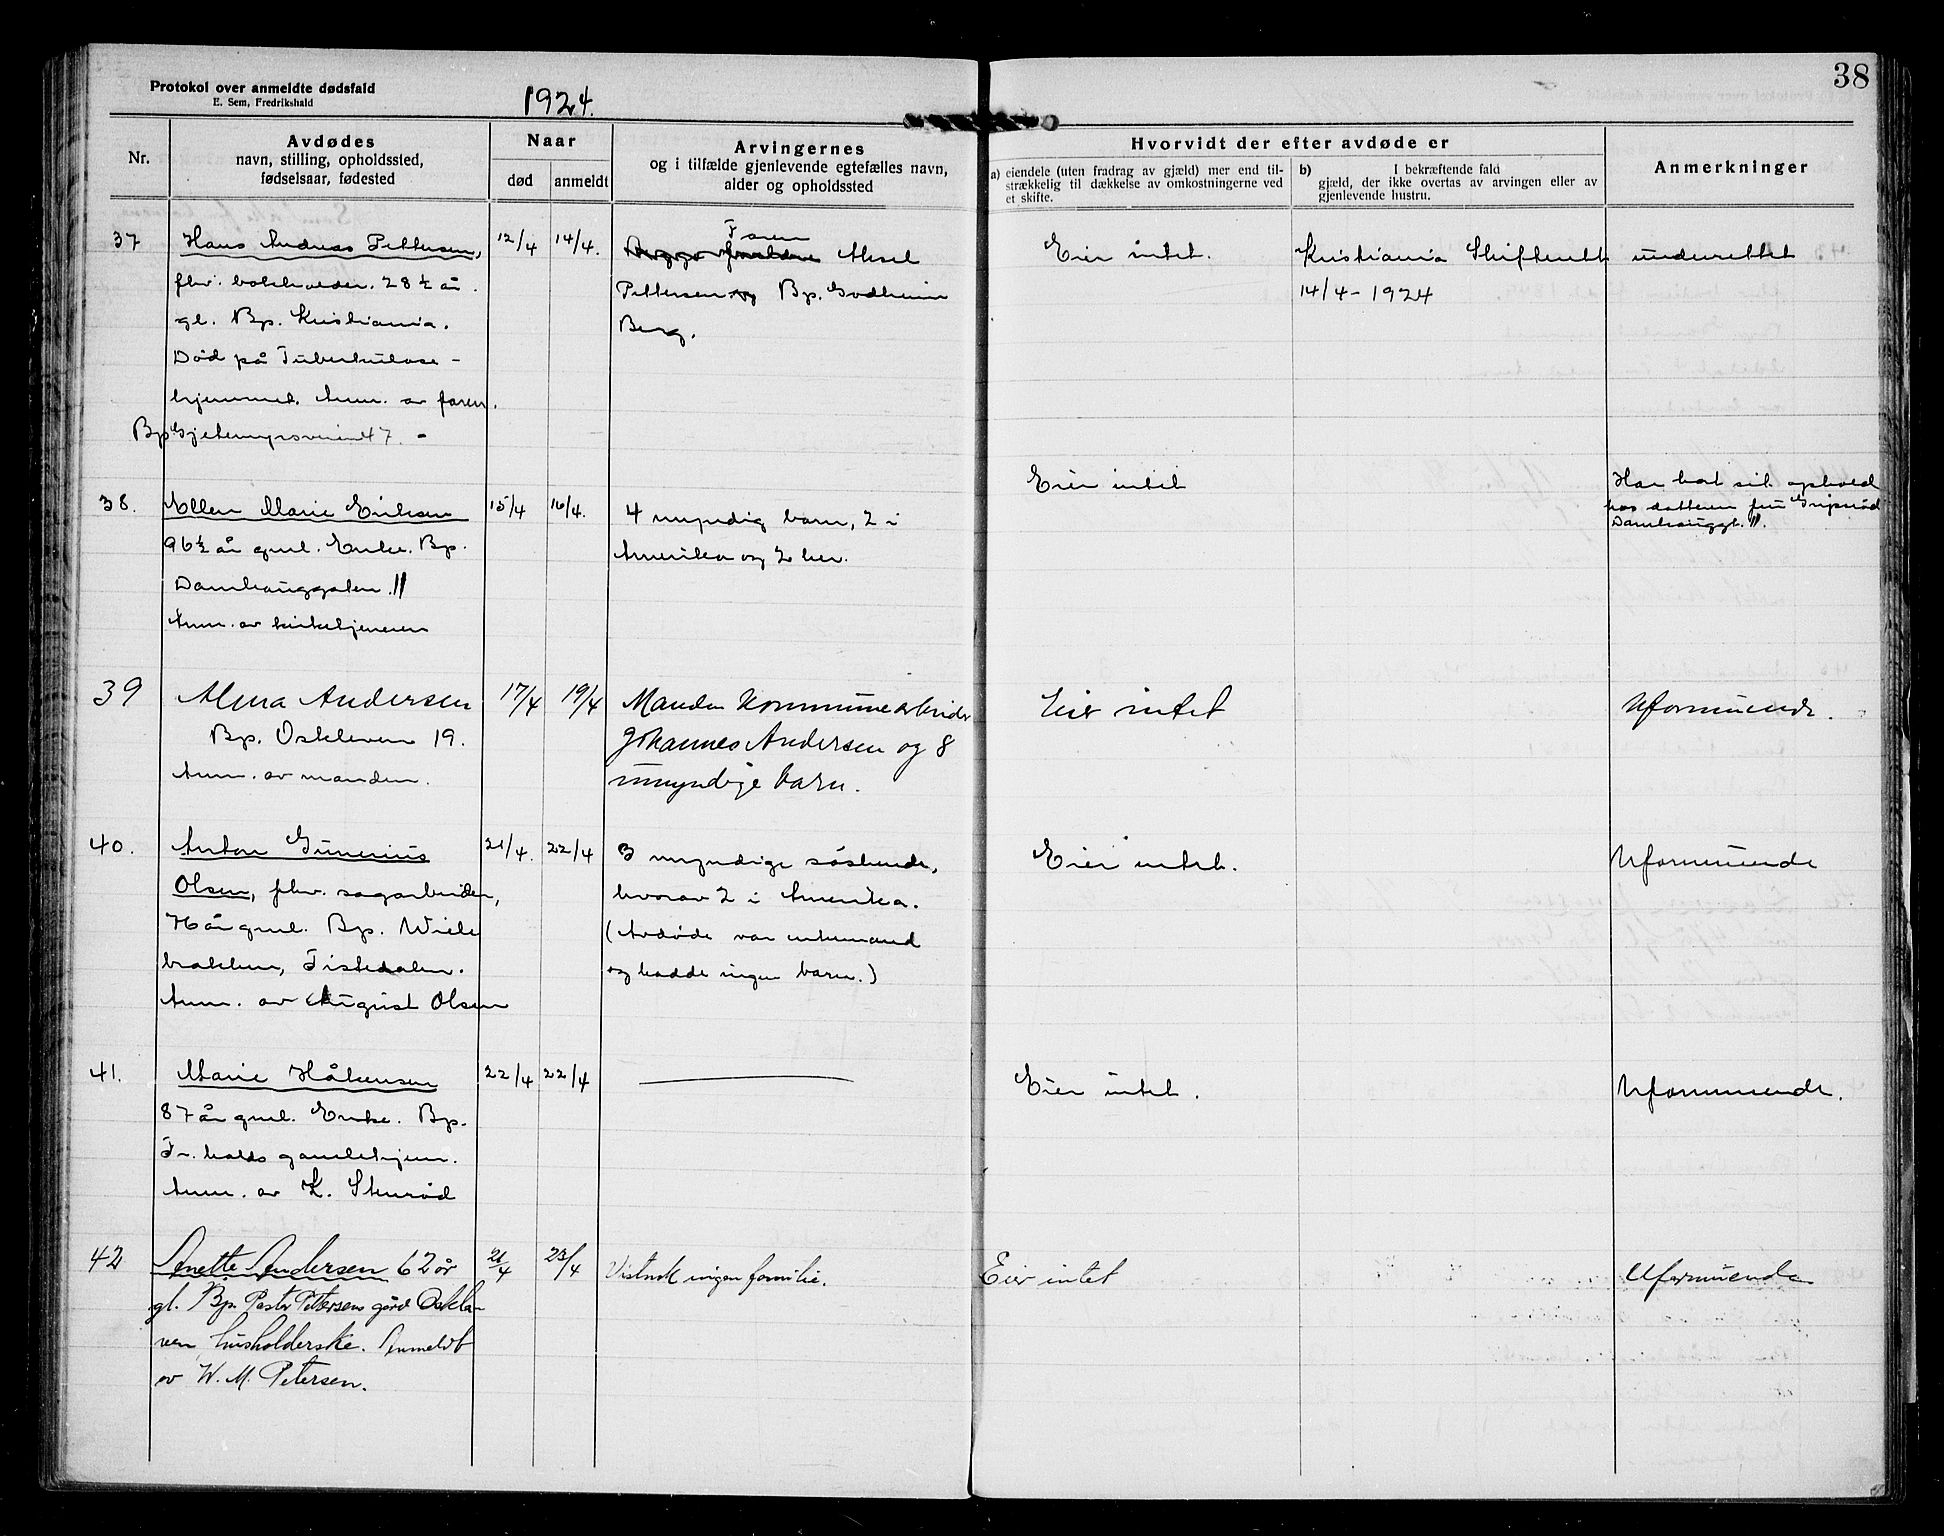 Protokol over anmeldte dødsfald
E. Sem, Fredrikshald
1924.
38
Nr.
Avdødes
navn, stilling, opholdssted,
fødselsaar, fødested
Naar
død
anmeldt
Arvingernes
og i tilfælde gjenlevende egtefælles navn,
alder og opholdssted
Hvorvidt der efter avdøde er
a) eiendele (uten fradrag av gjæld) mer end til-
strækkelig til dækkelse av omkostningerne ved
et skifte.
b) I bekræftende fald
gjæld, der ikke overtas av arvingen eller av
gjenlevende hustru.
Anmerkninger
37
Hans Andreas Pettersen,
fhv. bokholder. 28½ år.
gl. Bp. Kristiania.
Død på Tuberkulose-
hjemmet. Anm. av faren.
Bp Gjetemyrsveien 47. -
12/4
14/4.
Faren
Begge foreldre Aksel
Pettersen og Bp. Godheim
Berg.
Eier intet.
Kristiania Skifterett underrettet
14/4 - 1924
38.
Ellen Marie Eriksen
96½ år gml. Enke. Bp.
Damhauggaten 11
Anm. av kirketjeneren
15/4
16/4.
4 myndig barn, 2 i
Amerika og 2 her.
Eier intet
Har hat sit ophold
hos datteren fru Gripsrød
Damhauggt. 11.
39
Alma Andersen
Bp. Oskleven 19.
Anm. av manden.
17/4
19/4
Manden Kommunearbeider
Johannes Andersen og 8
umyndige barn.
Eier intet
Uformuende.
40.
Anton Gunerius
Olsen, fhv. sagarbeider,
år gml. Bp. Wiele
bakken, Tistedalen.
Anm. av August Olsen
21/4.
22/4
3 myndige søskende,
hvorav 2 i Amerika.
(Avdøde var enkemand
og hadde ingen barn.)
Eier intet.
Uformuende
41.
Marie Håkensen
87 år gml. Enke. Bp.
Fr. halds gamlehjem.
Anm. av K. Stenrød
22/4
22/4
Eier intet.
Uformuende.
42
Anette Andersen 62 år
gl. Bp. Pastor Petersens gård Oskle
ven, husholderske. Anmeldt
av W. M. Petersen.
21/4
23/4
Vistnok ingen familie.
Eier intet
Uformuende